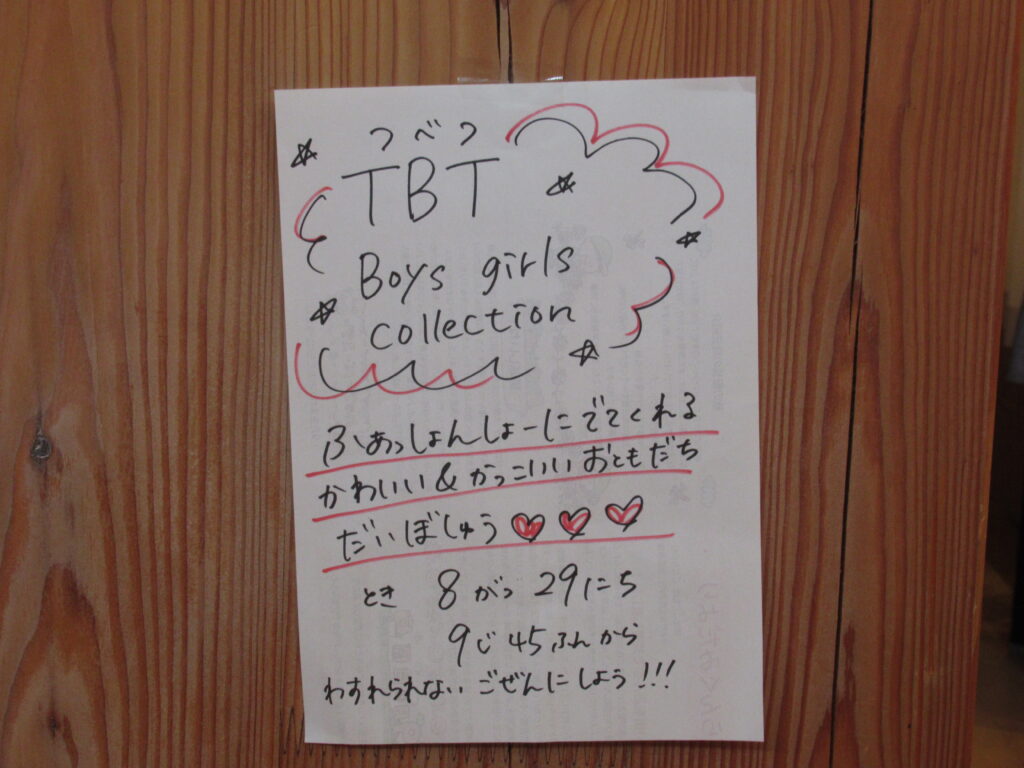 つべつ
TBT
Boys girls
collection
ふぁっしょんしょーにでてくれる
かわいい&かっこいいおともだち
だいぼしゅう
とき 8がつ29にち
9じ45ふんから
わすれられない ごぜんにしよう!!!